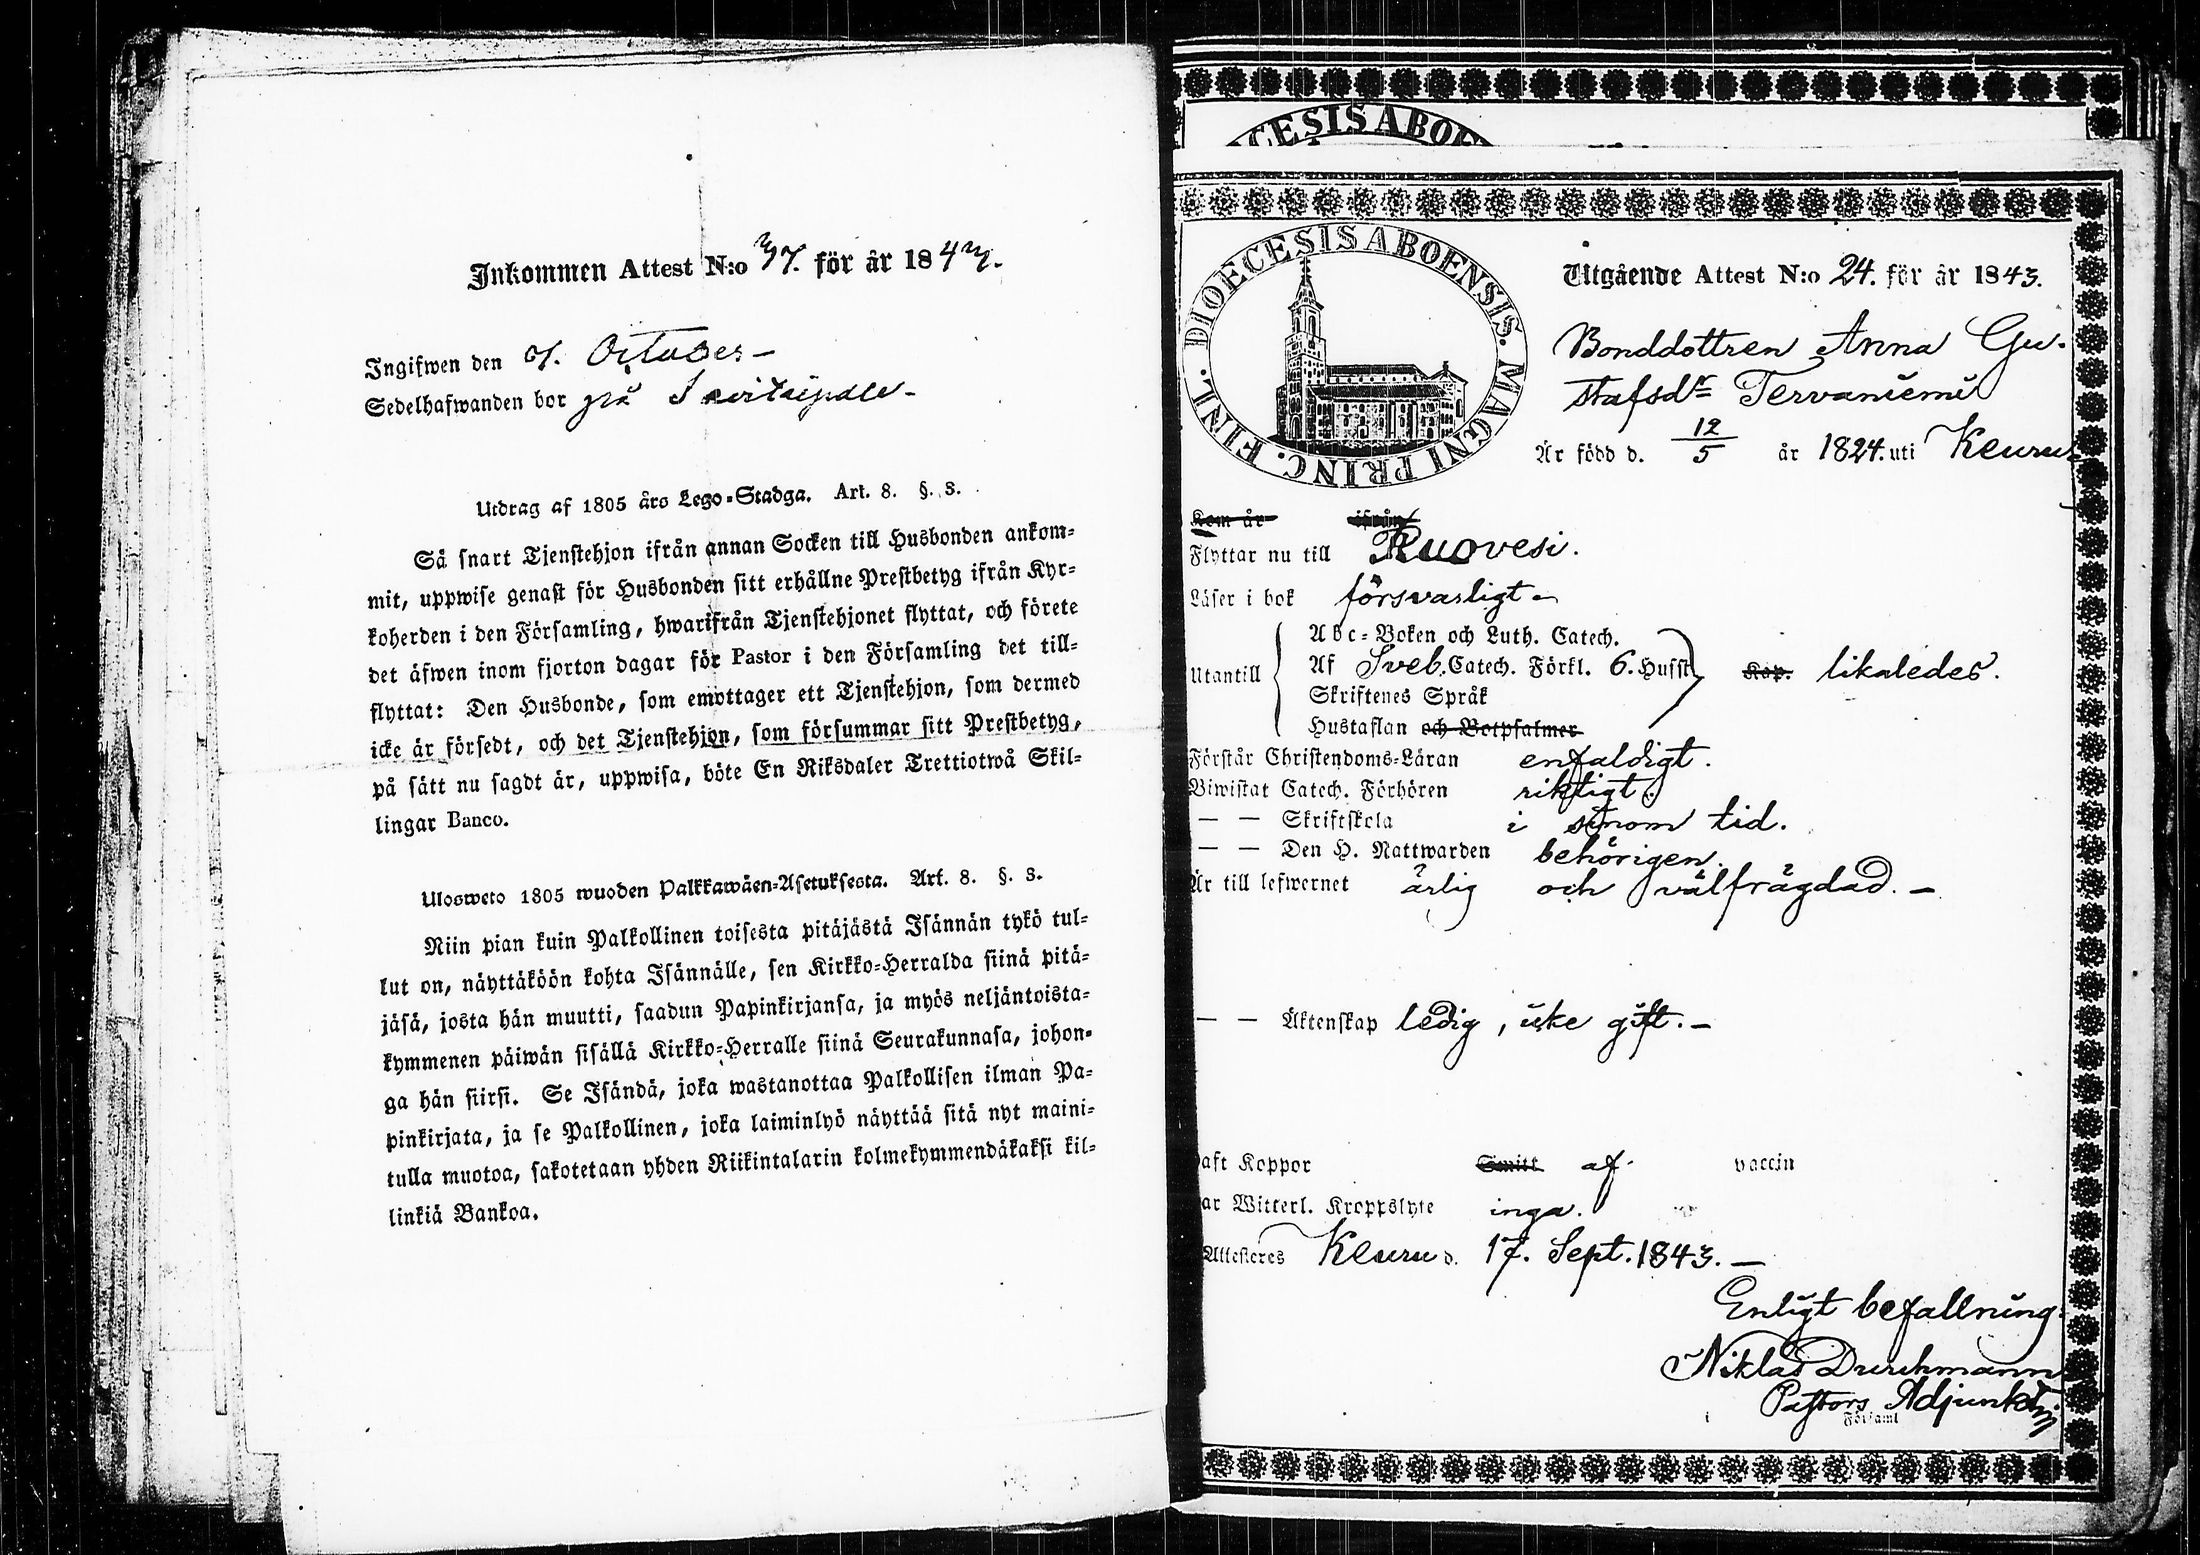 Inkommen Attest N:o 37. för år 1843.
Ingifwen den October
Sedelhafwanden bor på
Utdrag af 1805 års Lego-Stadga. Art. 8. §. 3.
Så snart Tjenstehjon ifrån annan Socken till Husbonden ankom-
mit, uppwise genast för Husbonden sitt erhållne Prestbetyg ifrån Kyr-
koherden i den Församling, hwarifrån Tjenstehjonet flyttat, och förete
det äfwen inom fjorton dagar för Pastor i den Församling det till-
flyttat: Den Husbonde, som emottager ett Tjenstehjon, som dermed
icke är försedt, och det Tjenstehjon, som försummar sitt Prestbetyg,
på sätt nu sagdt är, uppwisa, böte En Riksdaler Trettiotwå Skil-
lingar Banco.
Ulosweto 1805 wuoden Palkkawäen-Asetuksesta. Art. 8. §. 3.
Niin pian kuin Palkollinen toisesta pitäjästä Isännän tykö tul-
lut on, näyttäköön kohta Isännälle, sen Kirkko-Herralda siinä pitä-
jäsä, josta hän muutti, saadun Papinkirjansa, ja myös neljäntoista-
kymmenen päiwän sisällä Kirkko-Herralle siinä Seurakunnasa, johon-
ga hän siirsi. Se Isändä, joka wastanottaa Palkollisen ilman Pa-
pinkirjata, ja se Palkollinen, joka laiminlyö näyttää sitä nyt maini-
tulla muotoa, sakotetaan yhden Riikintalarin kolmekymmendäkaksi kil-
linkiä Bankoa.
CESIS ABOE
DIOECESIS ABOENSIS. MAGNI PRINC. FINL.
Utgående Attest N:o 24. för år 1843.
Bonddottren Anna Gu-
stafsdr Tervaniemi
Är född d. 12/5 år 1824. uti Keuru
Kom år ifrån
Flyttar nu till Ruovesi.
Läser i bok försvarligt
Abc-Boken och Luth. Catech.
Utantill Af Sveb. Catech. Förkl. 6. Hufst Kap. likaledes.
Skriftenes Språk
Hustaflan och Botpsalmer
Förstår Christendoms-Läran enfaldigt.
Biwistat Catech. Förhören riktigt.
— — Skriftskola i sinom tid.
— — Den H. Nattwarden behörigen.
Är till lefwernet ärlig och välfrägdad. —
— — Äktenskap ledig, icke gift. —
aft Koppor Smitt af vaccin
ar Witterl. Kroppslyte inga.
Attesteres Keuru d. 17. Sept. 1843. —
Enligt befallning:
Niklas
Pastors Adjunkt
i Församl